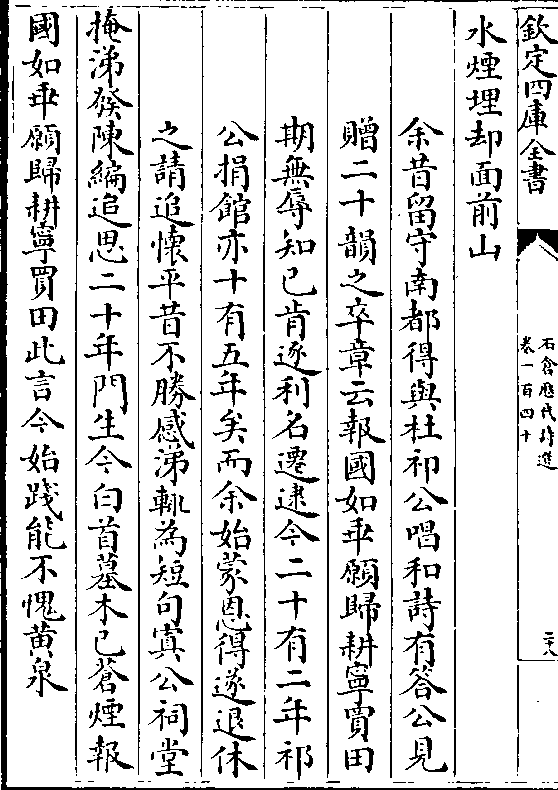 欽定四庫全書
石倉歷代詩選
卷一百四十
二十八
水煙埋却面前山
余昔留守南都得與杜祁公唱和詩有答公見
贈二十韻之卒章云報國如乖願歸耕寧賣田
期無辱知己肯逐利名遷逮今二十有二年祁
公捐館亦十有五年矣而余始蒙恩得遂退休
之請追懷平昔不勝感涕輒為短句寘公祠堂
掩涕發陳編追思二十年門生今白首墓木已蒼煙報
國如乖願歸耕寧買田此言今始踐能不愧黃泉